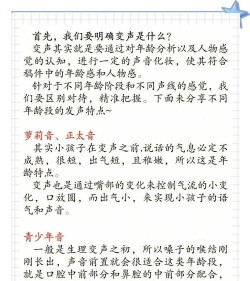 首先，我们要明确变声是什么？
变声其实就是要通过对年龄分析以及人物感
觉的认知，进行一定的声音化妆，使其符合
稿件中的年龄感和人物感。
针对于不同年龄阶段和不同声线的感觉，我
们要区别对待，精准把握。下面来分享不同
年龄段的发声特点~
萝莉音、正太音
其实小孩子在变声之前,说话的气息必定不
成熟，很短，出气短，且稚嫩，所以这是年
龄特点。
变声也是通过嘴部的变化来控制气流的小变
化，口放圆，而出气小，来实现小孩子的语
气和声音。
青少年音
一般是生理变声之初，所以嗓子的喉结刚
刚长出，声音前置就会很适合这类年龄段，
就是口腔中前部分和鼻腔的中前部分配合，